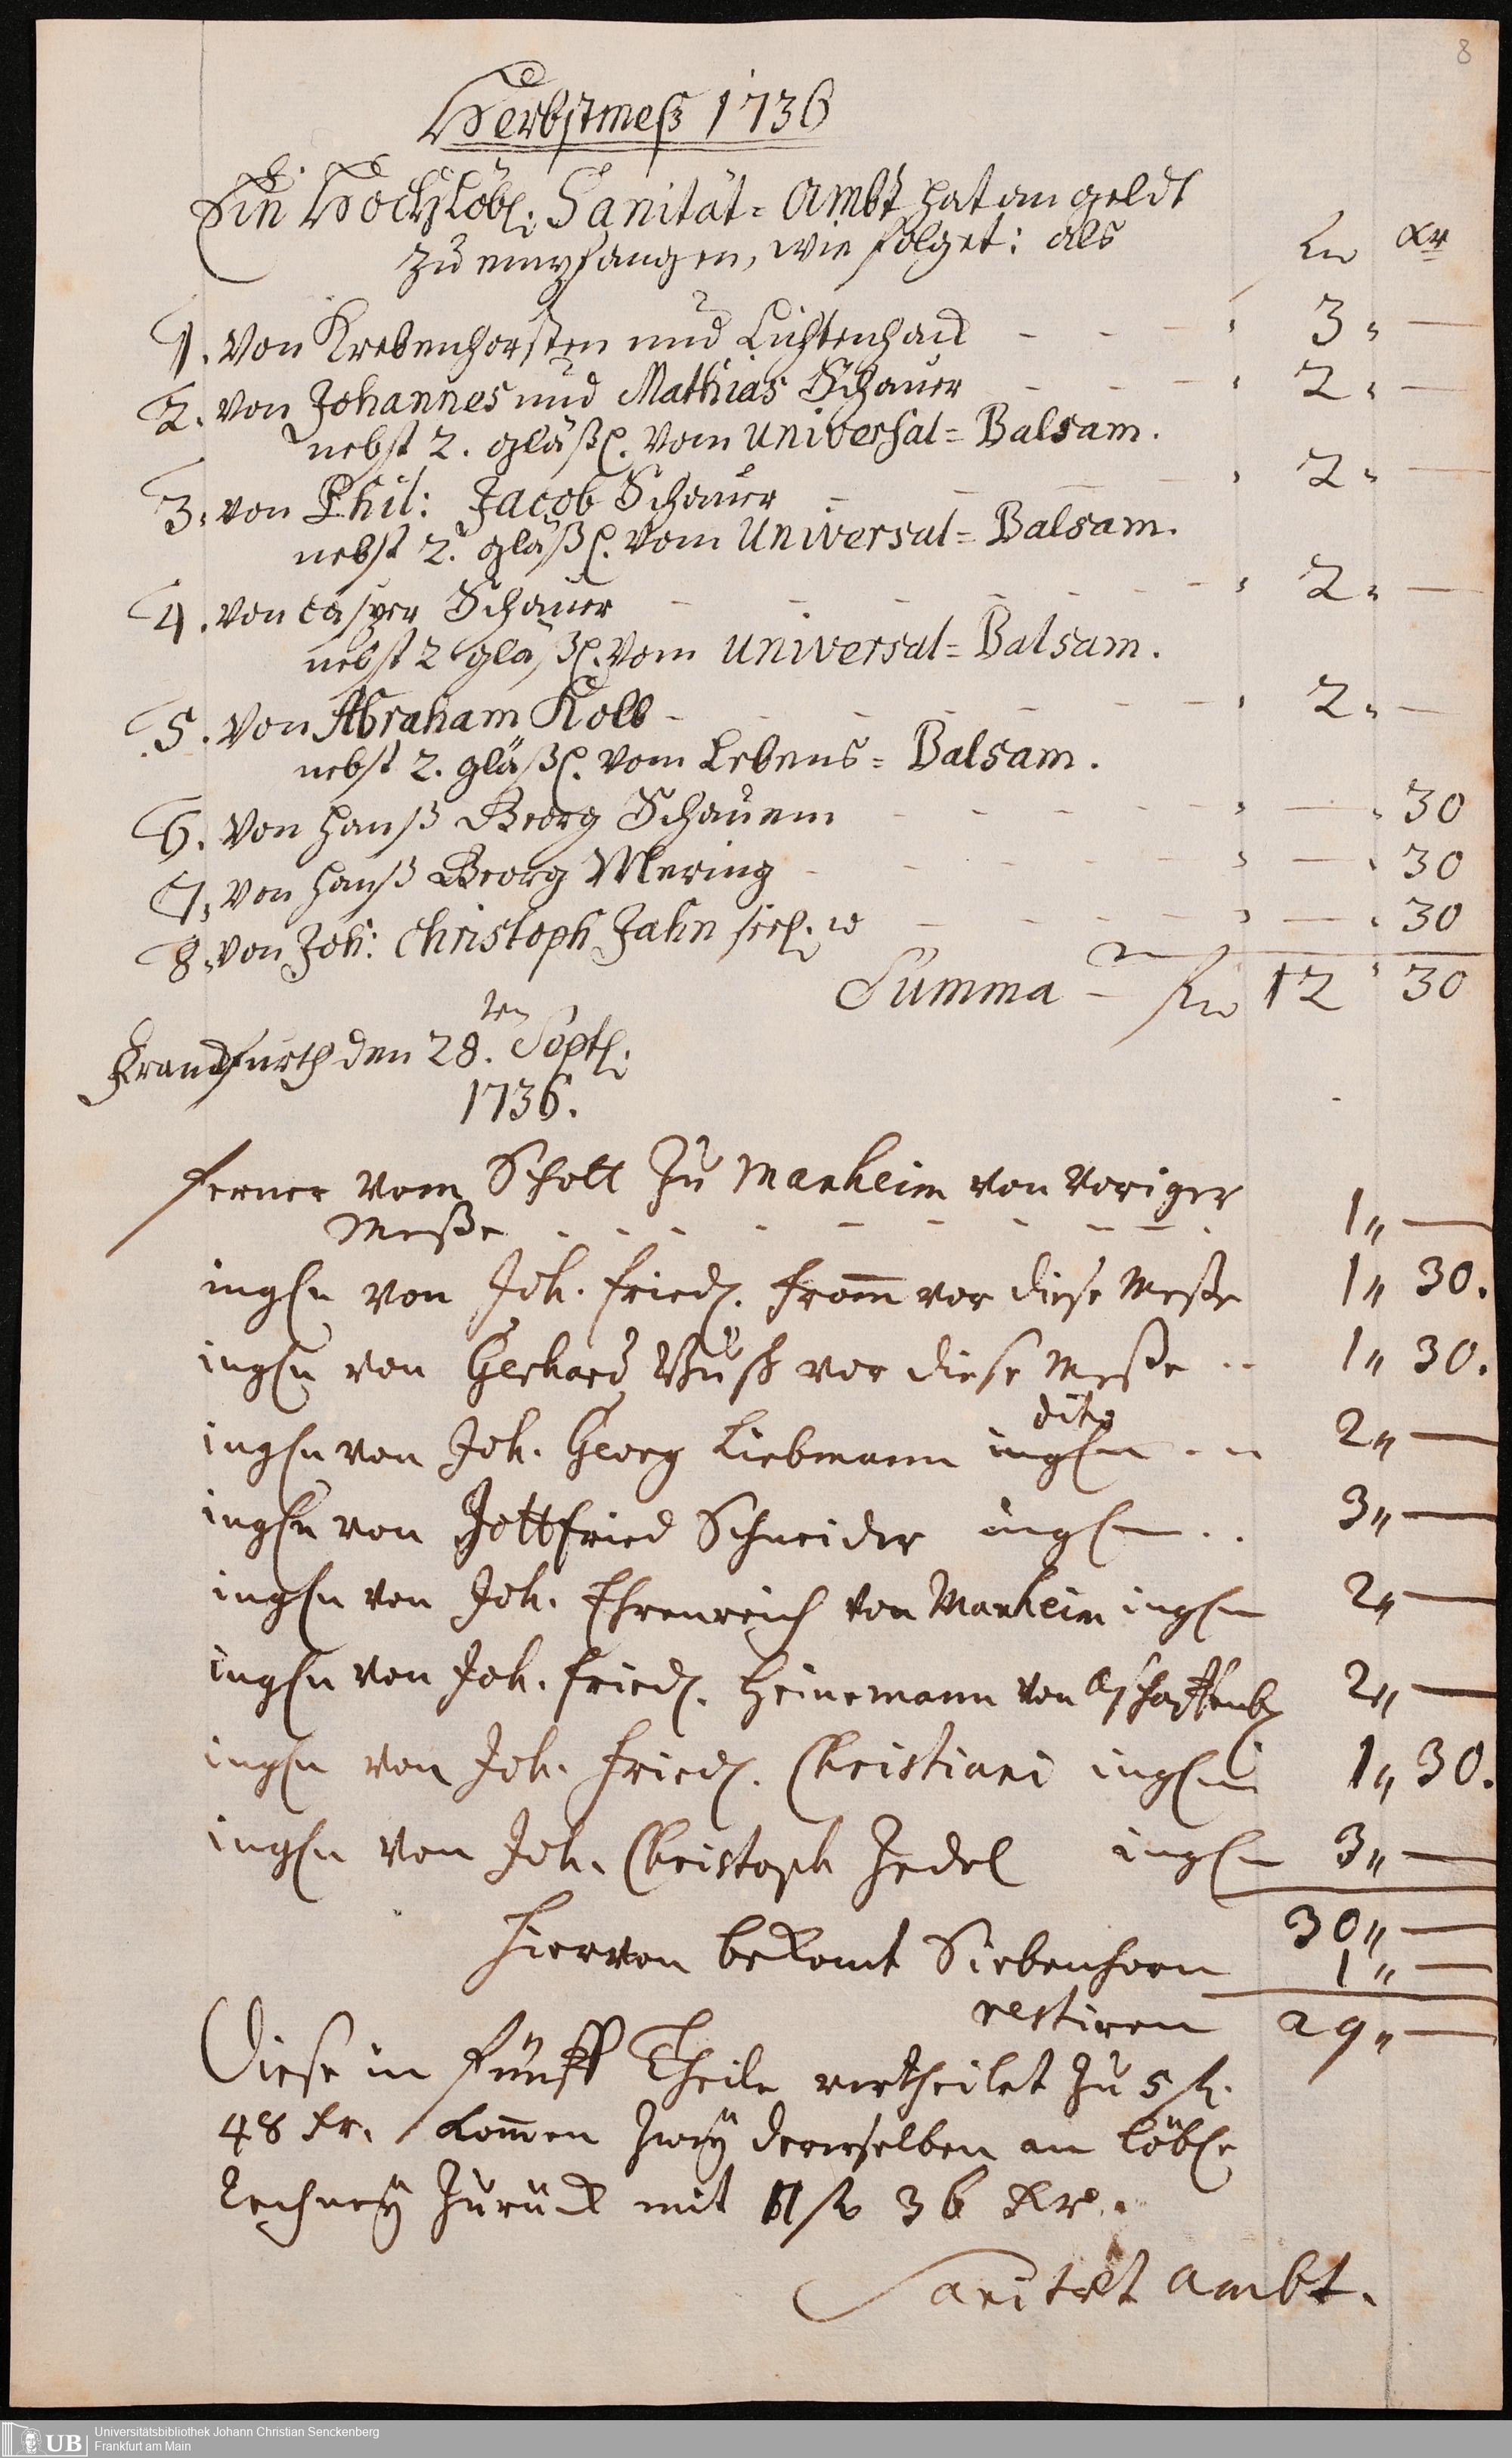 8
Herbstmeß 1736
Ein HochLöbl. Sanität=Ambt hat an geldt
zu empfangen, wie folget: als fl. Xr
1. Von Krebenhorsten und Lichtenhan - - - 3 „ —
2. von Johannes und Mathias Schauer - - - 2 „ —
nebst 2. gläßl. vom Universal=Balsam.
3. von Phil: Jacob Schauer - - - 2 „ —
nebst 2. gläßl. vom Universal=Balsam.
4. von Casper Schauer - - - 2 „ —
nebst 2 gläßl. vom Universal=Balsam.
5. Von Abraham Kolb - - - 2 „ —
nebst 2. gläßl. vom Lebens=Balsam.
6. Von Hanß Georg Schauem - - - — „ 30
7. Von Hanß Georg Mering - - - — „ 30
8. von Joh: Christoph Jahn - - - — „ 30
Summa - fl. 12 „ 30
Franckfurth den 28.ten Septl.
1736.
ferner vom Scholl zu Manheim von voriger
Meße - - - 1 „ —
ingln von Joh. Friedl. From̄ vor diese Meße 1 „ 30.
ingln von Gerhard Buß vor diese Meße - - 1 „ 30.
dito
ingln von Joh. Georg Liebmann ingln - - 2 „ —
ingln von Gottfried Schneider ingln - - 3 „ —
ingln von Joh. Ehrenreich von Manheim ingln 2 „ —
ingln von Joh. Friedl. Heinemann von Aschaffenb. 2 „ —
ingln von Joh. Friedl. Christiani ingln 1 „ 30.
ingln von Joh. Christoph Jedel ingln 3 „ —
30 „ —
Hiervon bekomt Siebenhorn 1 „ —
restiren 29 „ —
Diese in fünff Theile vertheilet zu 5 fl.
48 Xr. kom̄en zwey derenselben an löbl.
Rechney zurück mit 11 fl. 36 Xr.
Sanitæt Ambt.
UB
Universitätsbibliothek Johann Christian Senckenberg
Frankfurt am Main